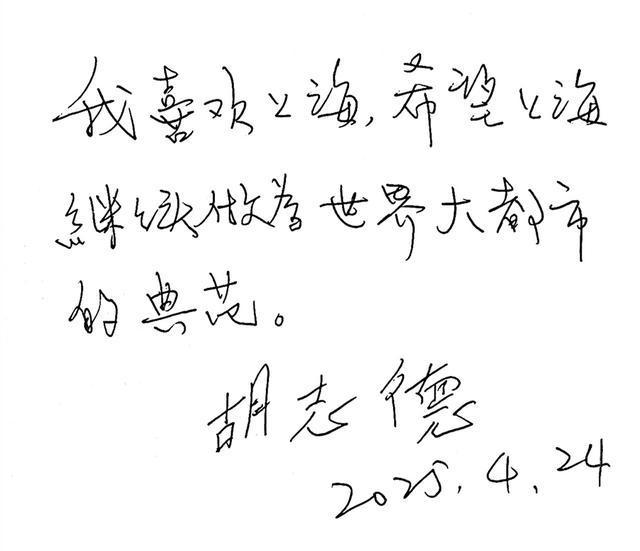 我喜欢上海,希望上海
继续做为世界大都市
的典范。
胡志德
2025.4.24